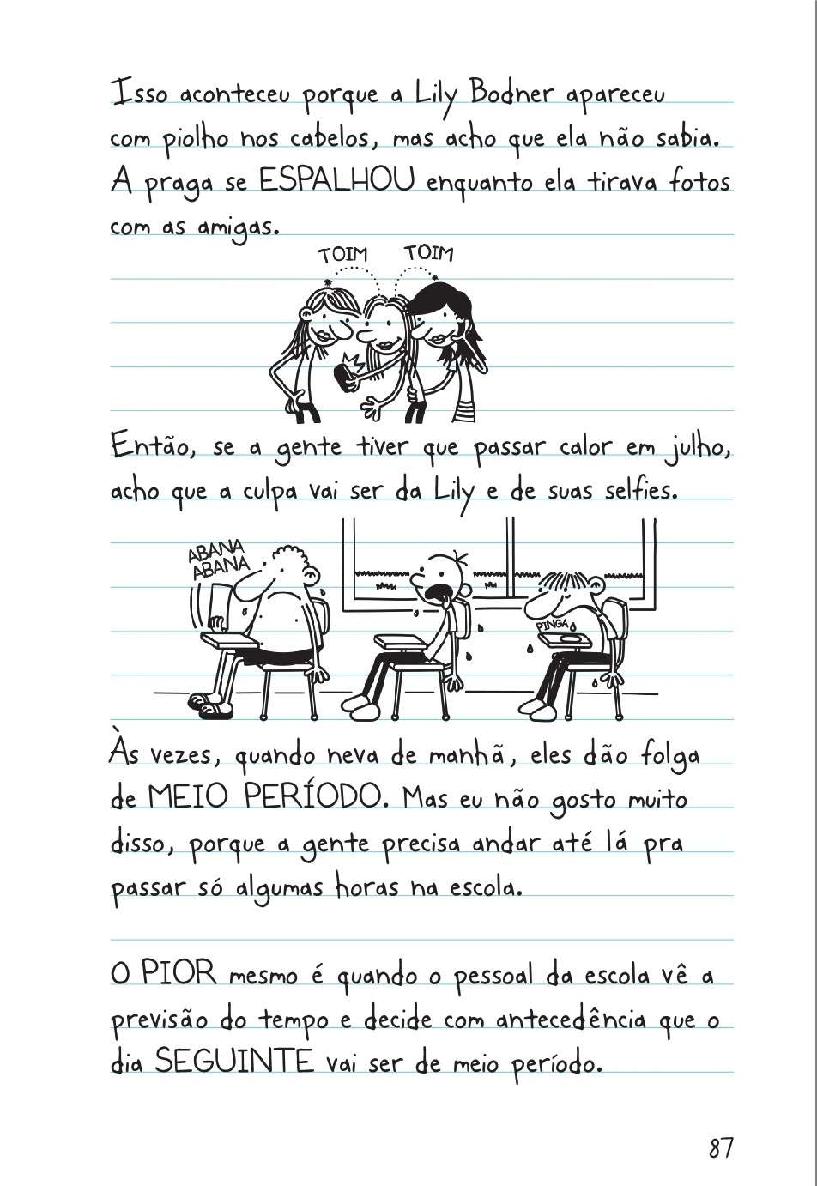 Isso aconteceu porque a Lily Bodner apareceu
com piolho nos cabelos, mas acho que ela não sabia.
A praga se ESPALHOU enquanto ela tirava fotos
com as amigas.
TOIM TOIM
Então, se a gente tiver que passar calor em julho,
acho que a culpa vai ser da Lily e de suas selfies.
ABANA
ABANA
PINGA
Às vezes, quando neva de manhã, eles dão folga
de MEIO PERÍODO. Mas eu não gosto muito
disso, porque a gente precisa andar até lá pra
passar só algumas horas na escola.
O PIOR mesmo é quando o pessoal da escola vê a
previsão do tempo e decide com antecedência que o
dia SEGUINTE vai ser de meio período.
87